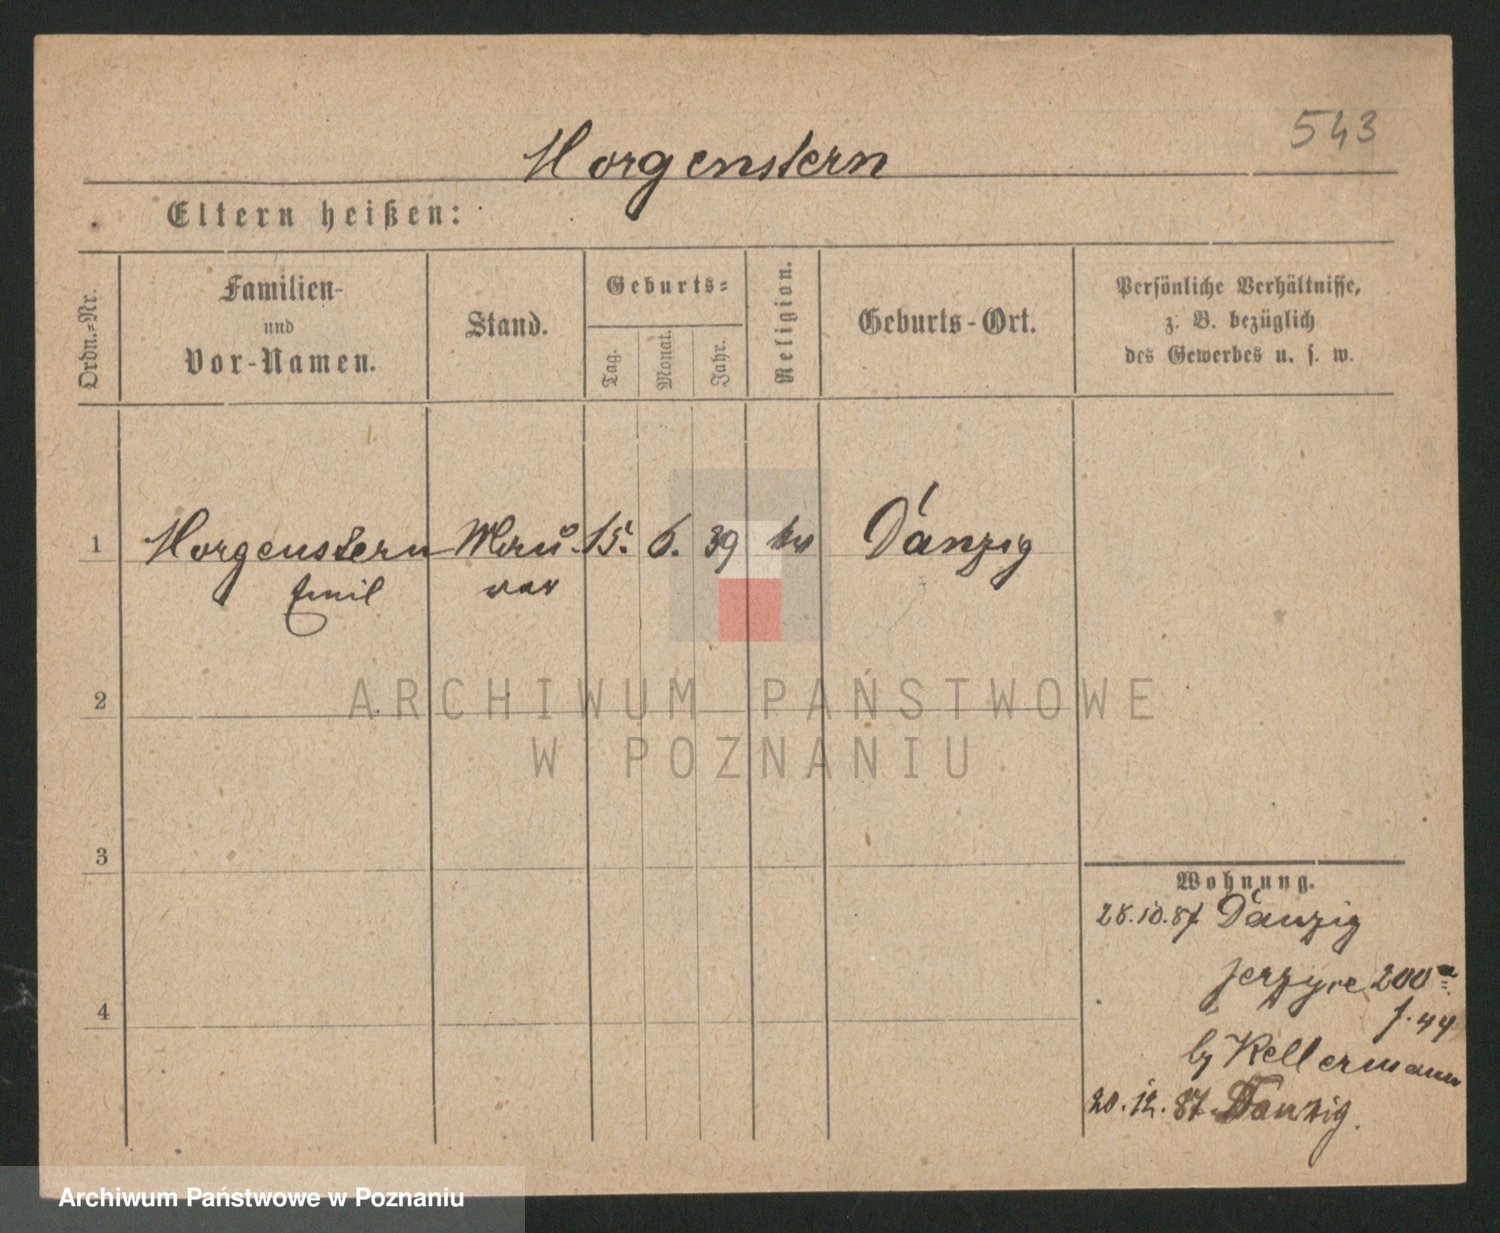 543
Morgenstern
Eltern heißen:
Ordn.-Nr.
Familien-
und
Vor-Namen.
Stand.
Geburts-
Tag.
Monat.
Jahr.
Religion.
Geburts-Ort.
Persönliche Verhältnisse,
z. B. bezüglich
des Gewerbes u. s. w.
1
Morgenstern
Emil
15.
6.
39
Danzig
2
ARCHIWUM PAŃSTWOWE
W POZNANIU
3
4
Wohnung.
28.10.87 Danzig
200
by Kellermann
20.12.87. Danzig.
Archiwum Państwowe w Poznaniu